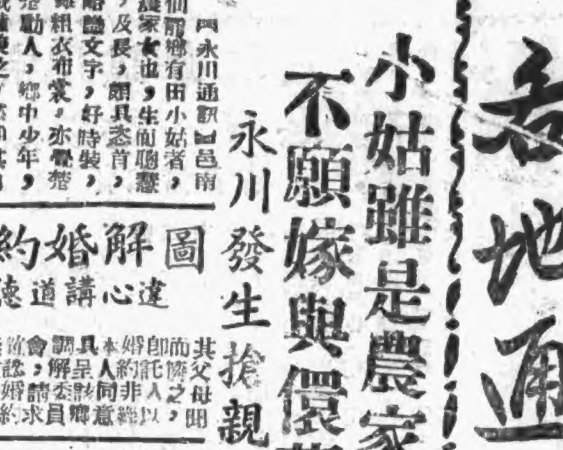 各地通
小姑雖是農家
不願嫁與儇薄
永川發生搶親
永川通訊邑南
仙龍鄉有田小姑者，
農家女也，生而聰慧
，及長，頗具恣首，
略識文字，好時裝，
粗衣布裳，亦覺楚
楚動人，鄉中少年，
圖解婚約
違心講道德
其父母聞
而憐之，
卽託人以
婚約非經
本人同意
具呈該鄉
調解委員
會，請求
婚約